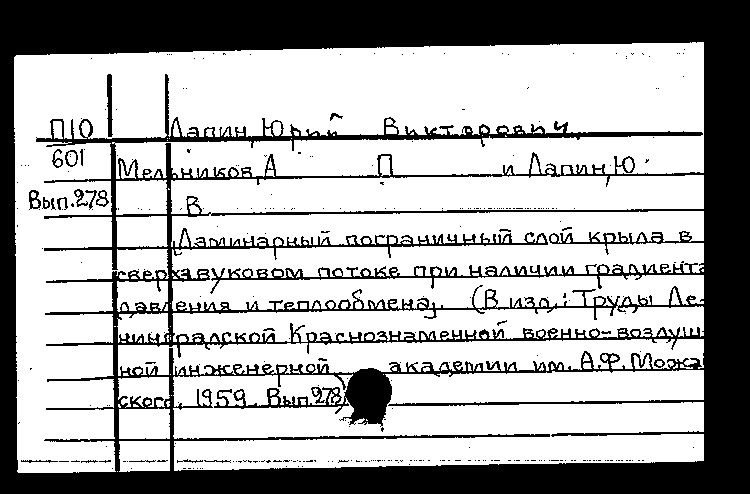 П10 Лапин, Юрий Викторович.
601
Мельников, А П и Лапин, Ю.
Вып.278
В.
[Ламинарный пограничный слой крыла в
сверхзвуковом потоке при наличии градиента
давления и теплообмена]. (В изд.: Труды Ле-
нинградской Краснознаменной военно-воздуш-
ной инженерной академии им. А.Ф. Можай
ского. 1959 Вып.278)